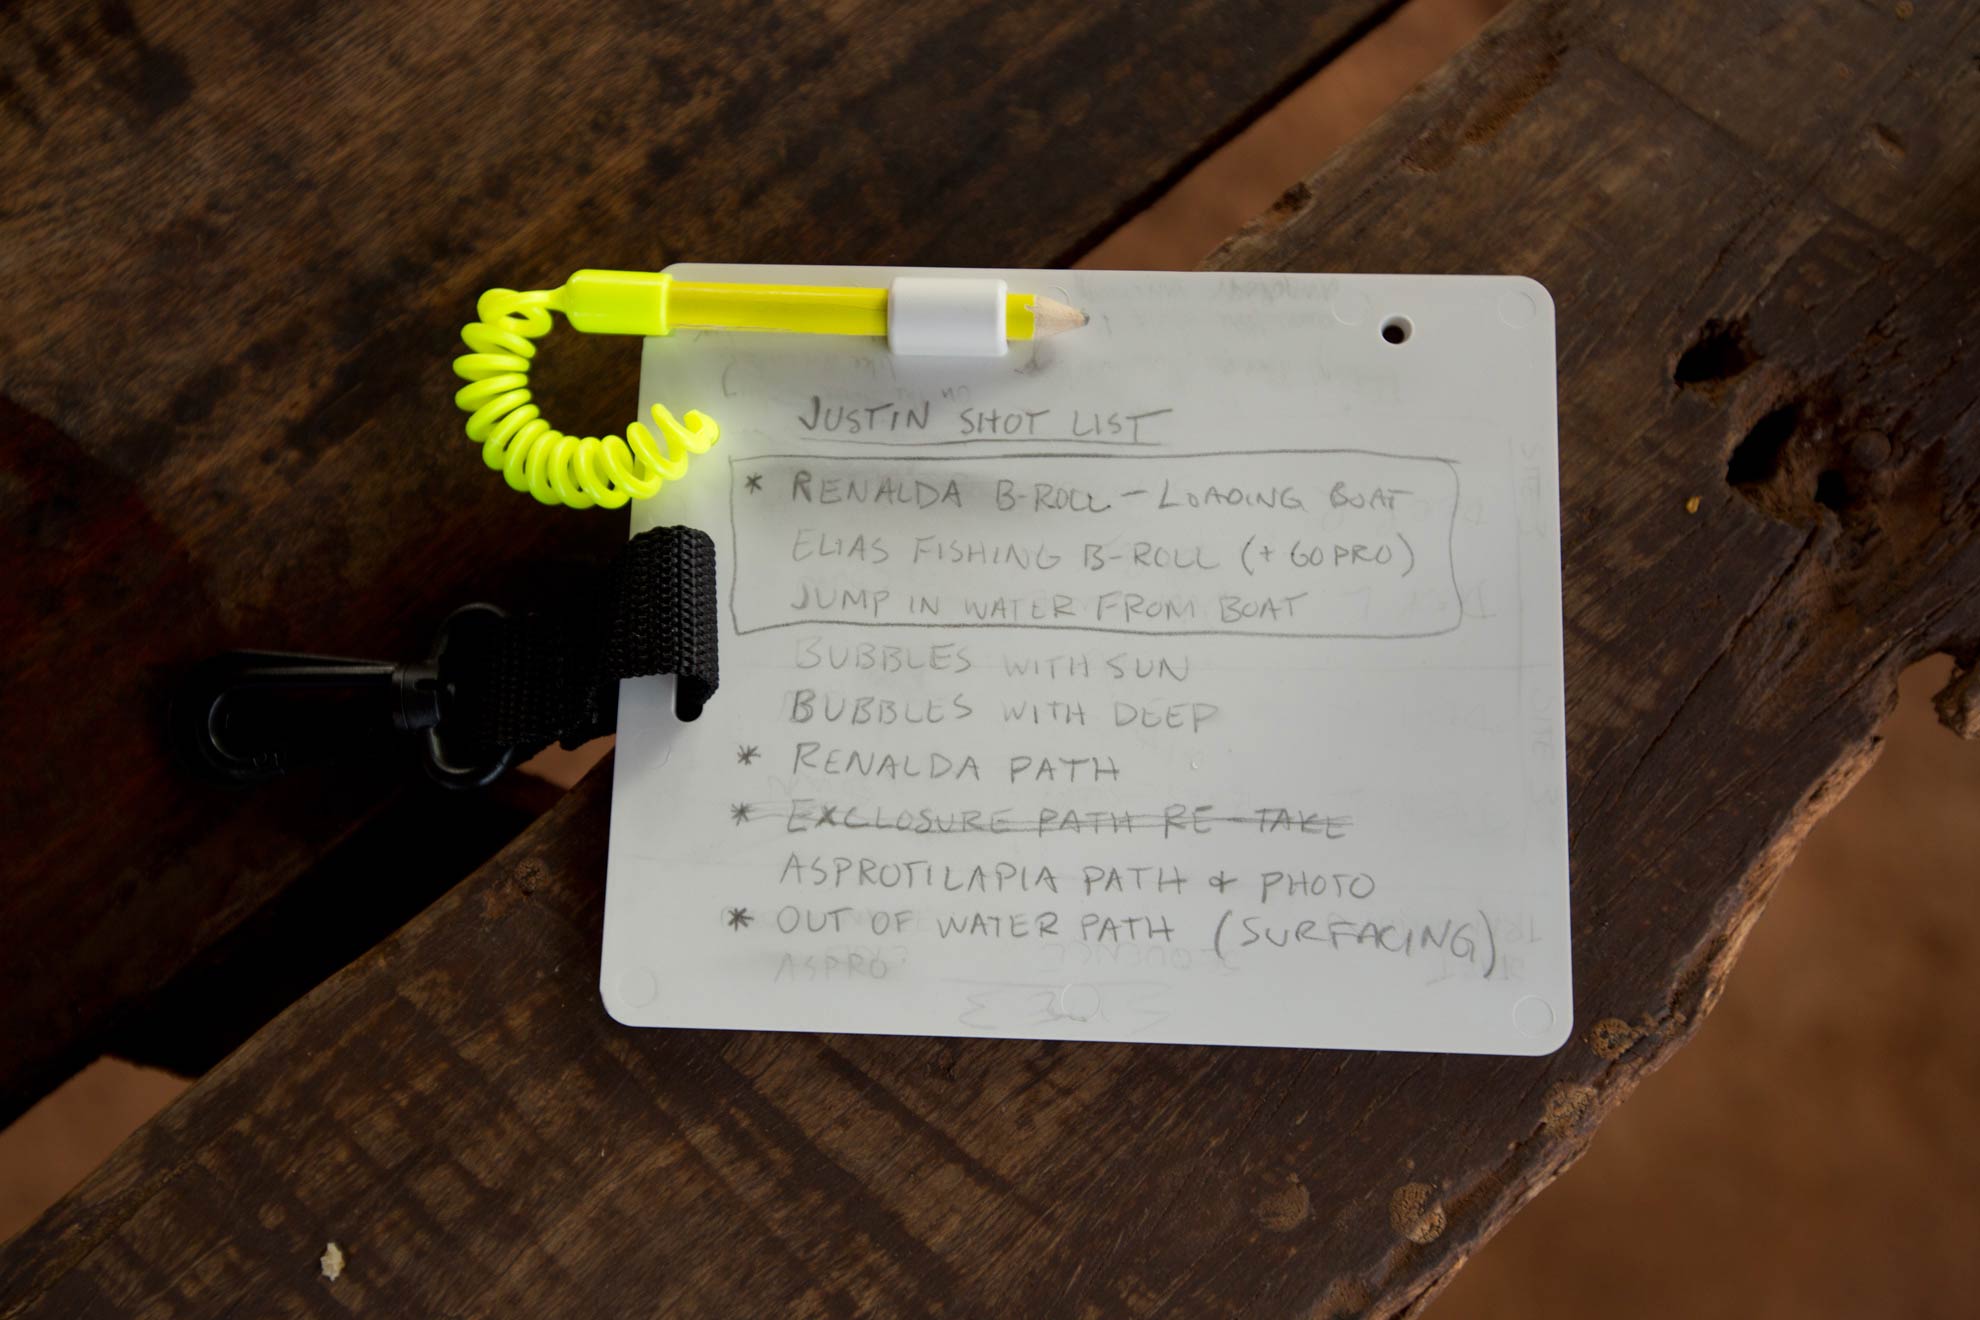 JUSTIN SHOT LIST
* RENALDA B-ROLL – LOADING BOAT
ELIAS FISHING B-ROLL (+ GOPRO)
JUMP IN WATER FROM BOAT
BUBBLES WITH SUN
BUBBLES WITH DEEP
* RENALDA PATH
* EXCLOSURE PATH RE-TAKE
ASPROTILAPIA PATH & PHOTO
* OUT OF WATER PATH (SURFACING)
ASPRO